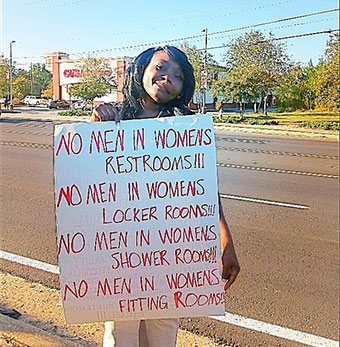 NO MEN IN WOMENS
RESTROOMS!!!
NO MEN IN WOMENS
LOCKER ROOMS!!!
NO MEN IN WOMENS
SHOWER ROOMS!!!
NO MEN IN WOMENS
FITTING ROOMS!!!